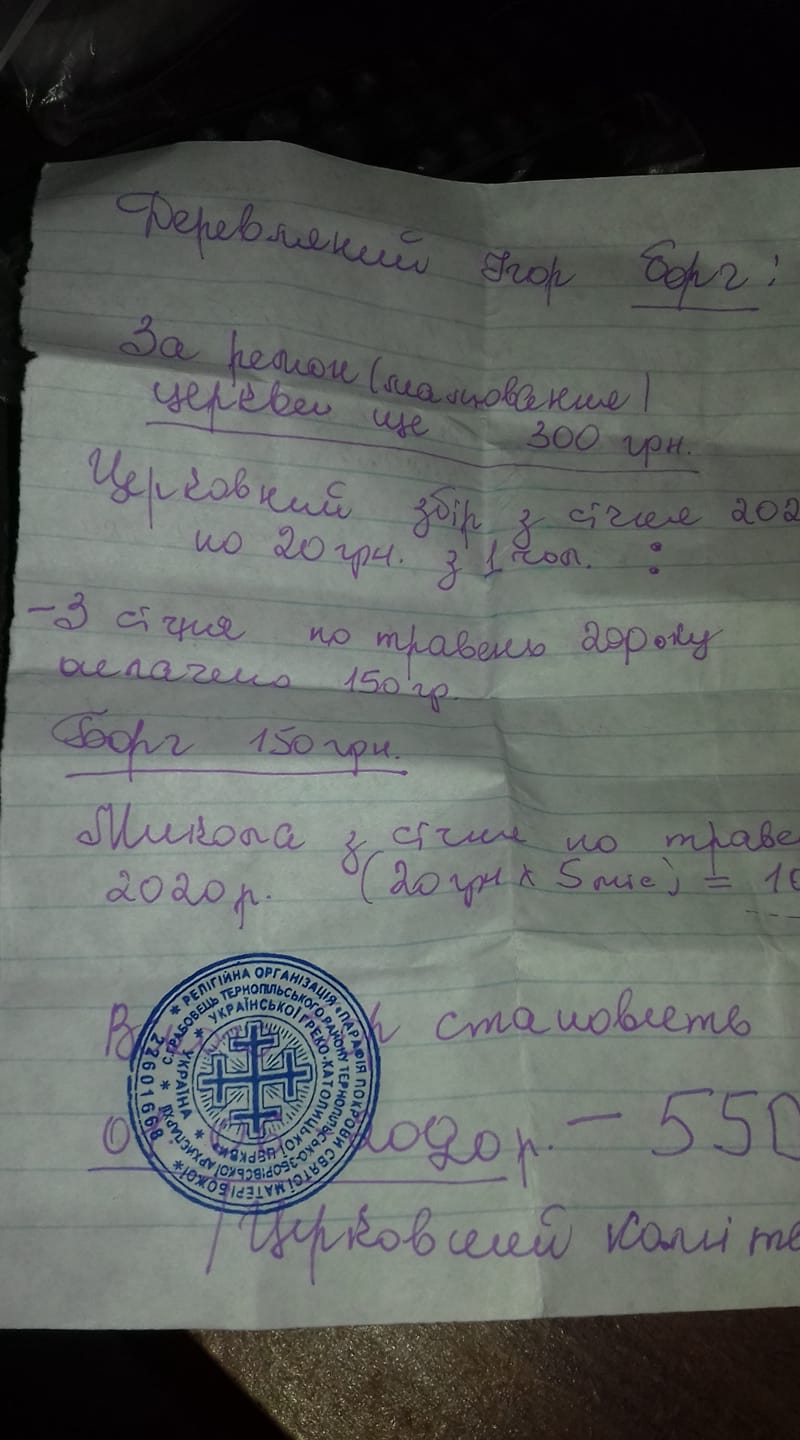 Деревляний Ігор борг:
За ремон (малювання)
церкви ще 300 грн.
Церковний збір з січня 202
по 20 грн. з 1 чол. :
- З січня по травень 20року
оплачено 150 гр.
Борг 150 грн.
Микола з січня по траве
2020 р. (20 грн х 5 міс) = 10
становить
2020 р. - 550
Церковний коміте
* РЕЛІГІЙНА ОРГАНІЗАЦІЯ «ПАРАФІЯ ПОКРОВИ СВЯТОЇ МАТЕРІ БОЖОЇ»
С.ГРАБОВЕЦЬ ТЕРНОПІЛЬСЬКОГО РАЙОНУ ТЕРНОПІЛЬСЬКО-ЗБОРІВСЬКОЇ АРХИЄПАРХІЇ
УКРАЇНСЬКОЇ ГРЕКО-КАТОЛИЦЬКОЇ ЦЕРКВИ
* УКРАЇНА *